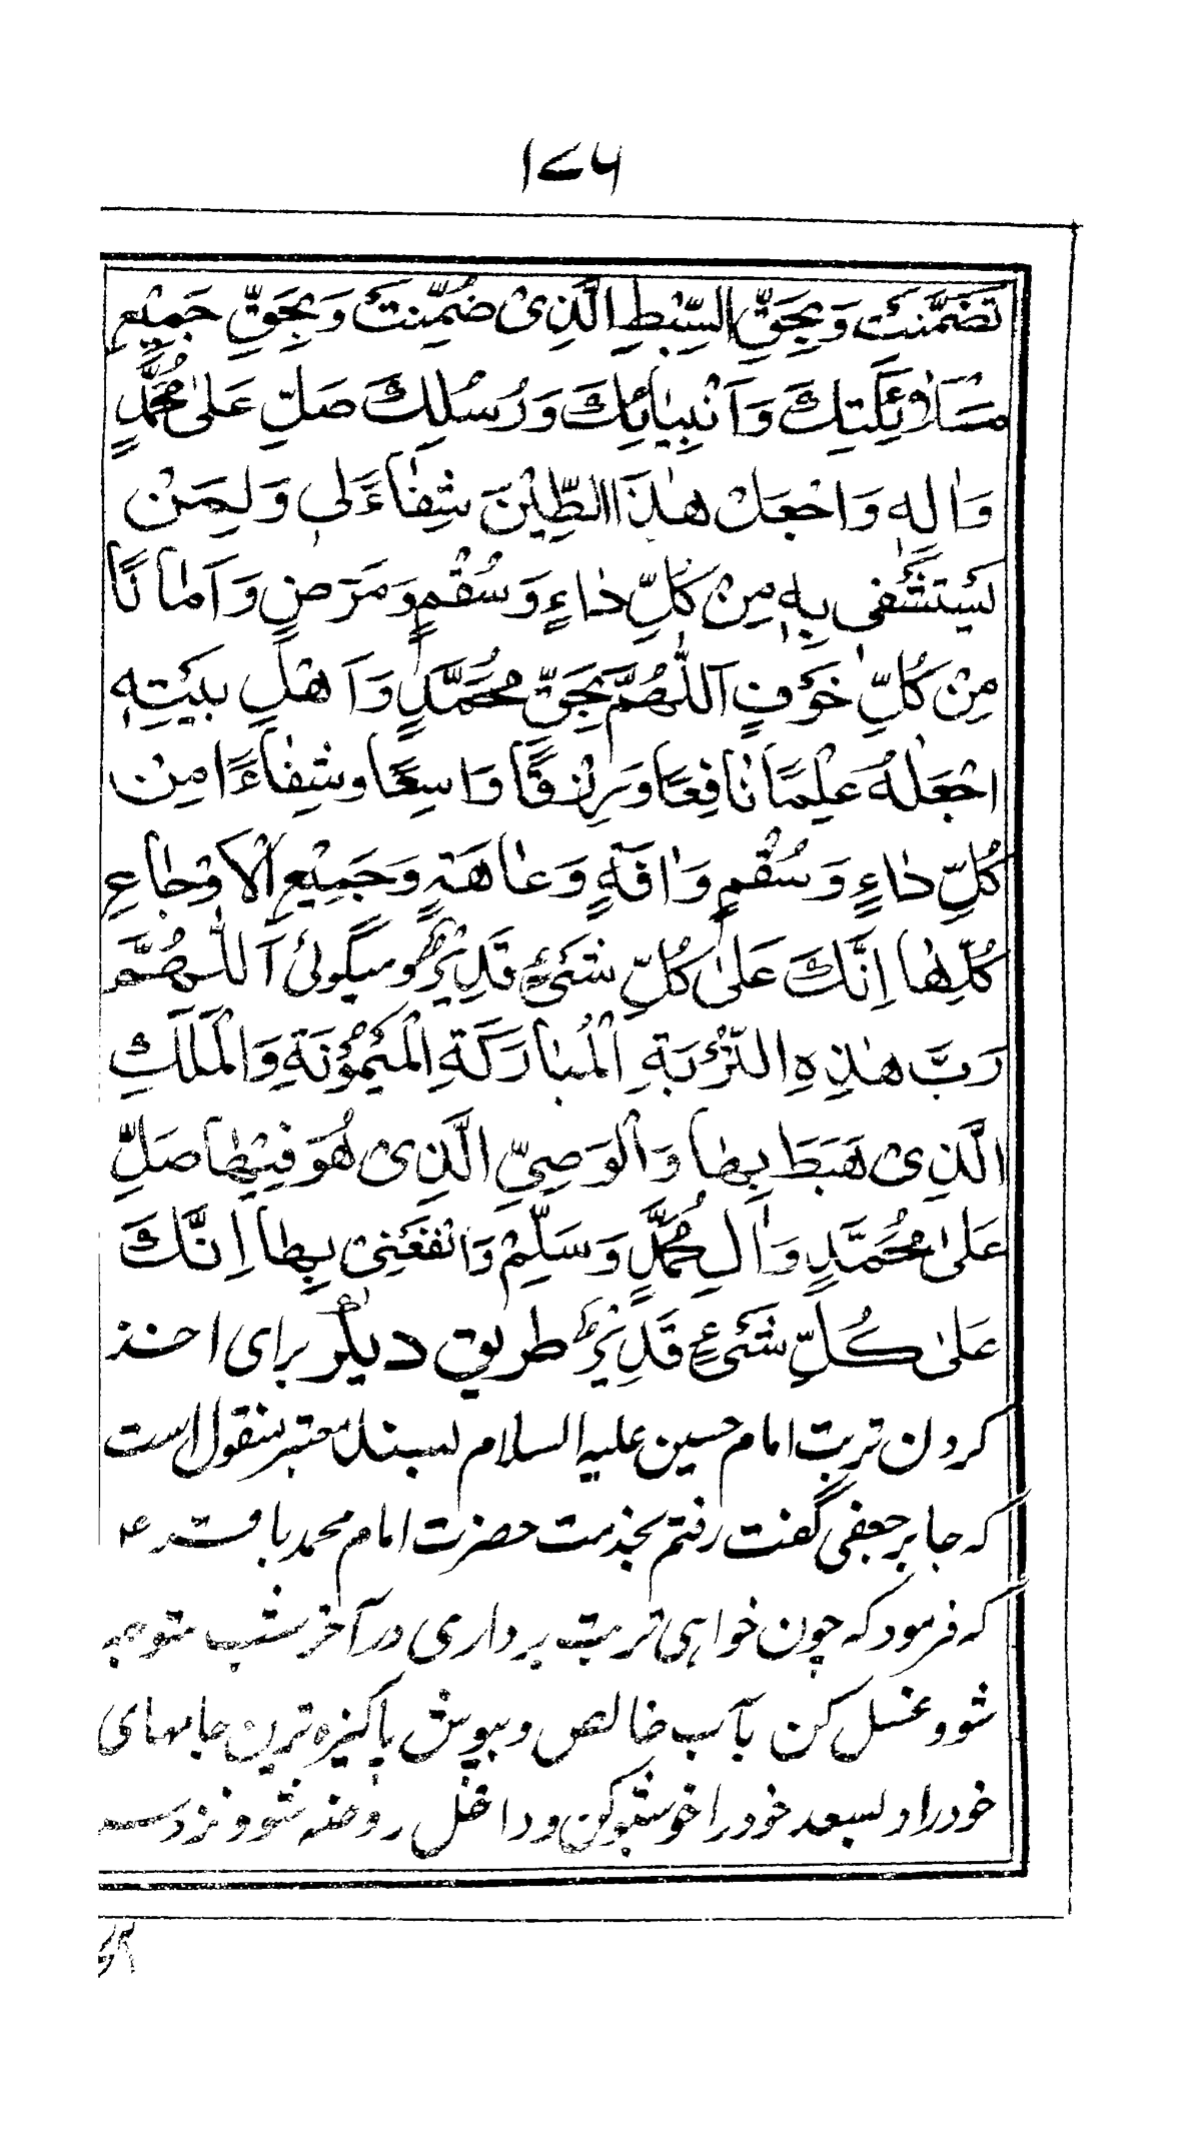 ۱۷۶
تَضَمَّنَتْ وَ بِحَقِّ السِّبْطِ الَّذِیْ ضُمِّنَتْ وَ بِحَقِّ جَمِیْعِ
مَلَآئِکَتِکَ وَ اَنْبِیَآئِکَ وَ رُسُلِکَ صَلِّ عَلٰی مُحَمَّدٍ
وَ اٰلِهِ وَ اجْعَلْ هٰذَا الطِّیْنَ شِفَآءً لِی وَ لِمَنْ
یَسْتَشْفِی بِهِ مِنْ کُلِّ دَآءٍ وَ سُقْمٍ وَ مَرَضٍ وَ اَمَانًا
مِنْ کُلِّ خَوْفٍ اَللّٰهُمَّ بِحَقِّ مُحَمَّدٍ وَ اَهْلِ بَیْتِهِ
اجْعَلْهُ عِلْمًا نَافِعًا وَ رِزْقًا وَاسِعًا و شِفَاءً امِنْ
کُلِّ دَاءٍ وَ سُقْمٍ وَ اٰفَةٍ وَ عَاهَةٍ وَ جَمِیْعِ الْاَوْجَاعِ
کُلِّهَا اِنَّکَ عَلٰی کُلِّ شَیْءٍ قَدِیْرٌ و میگوئی اَللّٰهُمَّ
رَبَّ هٰذِهِ التُّرْبَةِ الْمُبَارَکَةِ الْمَیْمُوْنَةِ وَ الْمَلَکِ
الَّذِیْ هَبَطَ بِهَا وَ الْوَصِیِّ الَّذِیْ هُوَ فِیْهَا صَلِّ
عَلٰی مُحَمَّدٍ وَ اٰلِ مُحَمَّدٍ وَ سَلِّمْ وَ انْفَعْنِیْ بِهَا اِنَّکَ
عَلٰی کُلِّ شَیْءٍ قَدِیْرٌ طریق دیگر برای اخذ
کردن تربت امام حسین علیه السلام بسند معتبر منقول است
که جابر جعفی گفت رفتم بخدمت حضرت امام محمد باقر ع
که فرمود که چون خواهی تربت برداری در آخر شب متوجه
شو و غسل کن بآب خالص و بپوش پاکیزه ترین جامهای
خود را و بسعد خود را خوشبو کن و داخل روضه شو و نزد سر